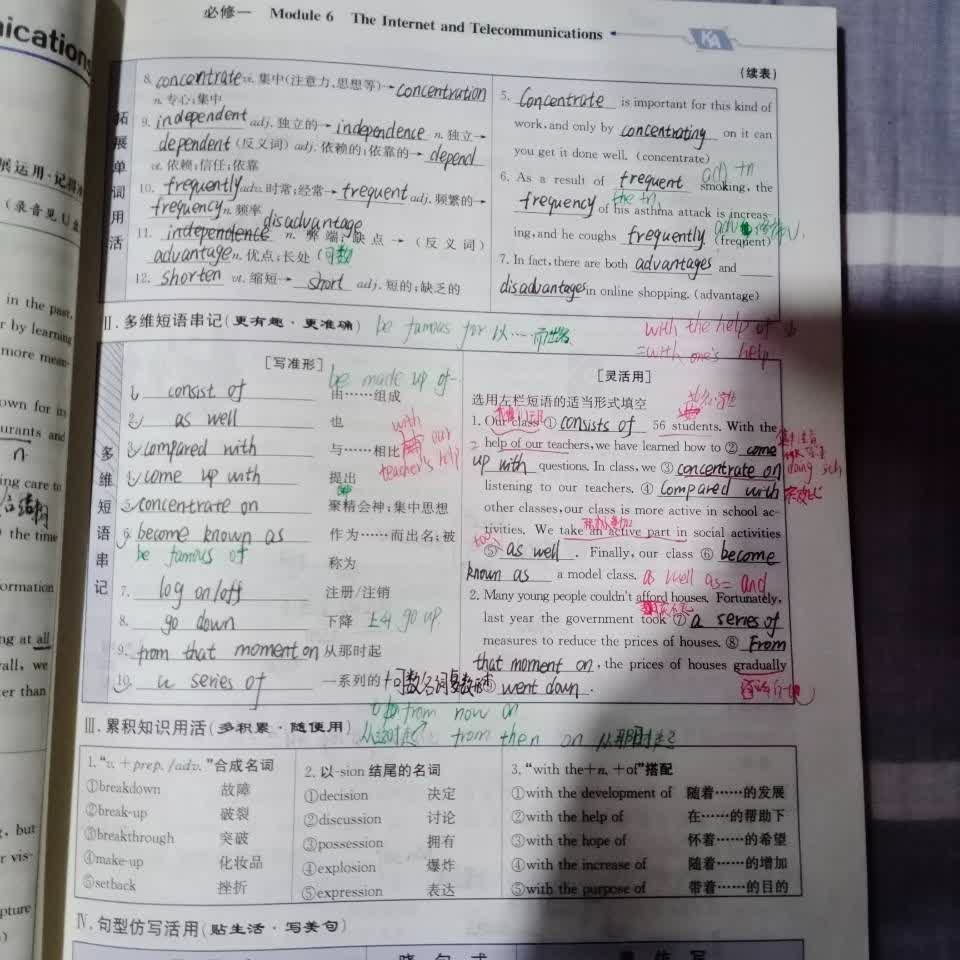 必修一 Module 6 The Internet and Telecommunications
(续表)
拓展单词用活
8. concentrate vi. 集中(注意力、思想等)→concentration
n. 专心;集中
9. independent adj. 独立的→independence n. 独立→
dependent (反义词) adj. 依赖的;依靠的→depend
vi. 依赖;信任;依靠
10. frequently adv. 时常;经常→frequent adj. 频繁的→
frequency n. 频率
disadvantage
11. independence n. 弊端;缺点→(反义词)
advantage n. 优点;长处 (可数
12. shorten vt. 缩短→short adj. 短的;缺乏的
5. Concentrate is important for this kind of
work, and only by concentrating on it can
you get it done well. (concentrate)
6. As a result of frequent smoking, the
frequency of his asthma attack is increas-
ing, and he coughs frequently. (frequent)
7. In fact, there are both advantages and
disadvantages in online shopping. (advantage)
Ⅱ. 多维短语串记(更有趣·更准确) be famous for 以……而出名
with the help of
=with one's help
多维短语串记
[写准形] be made up of
1. consist of 由……组成
2. as well 也
3. compared with 与……相比
with our
teacher's help
4. come up with 提出
5. concentrate on 聚精会神;集中思想
6. become known as 作为……而出名;被
be famous of 称为
7. log on/off 注册/注销
8. go down 下降 上升 go up
9. from that moment on 从那时起
10. a series of 一系列的+可数名词复数形
[灵活用]
选用左栏短语的适当形式填空
1. Our class ① consists of 56 students. With the
help of our teachers, we have learned how to ② come
up with questions. In class, we ③ concentrate on doing sth
listening to our teachers. ④ Compared with
other classes, our class is more active in school ac-
tivities. We take an active part in social activities
too
⑤ as well. Finally, our class ⑥ become
known as a model class. as well as = and
2. Many young people couldn't afford houses. Fortunately,
last year the government took ⑦ a series of
measures to reduce the prices of houses. ⑧ From
that moment on, the prices of houses gradually
⑨ went down.
from now on
from then on 从那时起
Ⅲ. 累积知识用活(多积累·随便用)
1. “v. + prep. /adv. ”合成名词
①breakdown 故障
②break-up 破裂
③breakthrough 突破
④make-up 化妆品
⑤setback 挫折
2. 以-sion 结尾的名词
①decision 决定
②discussion 讨论
③possession 拥有
④explosion 爆炸
⑤expression 表达
3. “with the+n. +of”搭配
①with the development of 随着……的发展
②with the help of 在……的帮助下
③with the hope of 怀着……的希望
④with the increase of 随着……的增加
⑤with the purpose of 带着……的目的
Ⅳ. 句型仿写活用(贴生活·写美句)